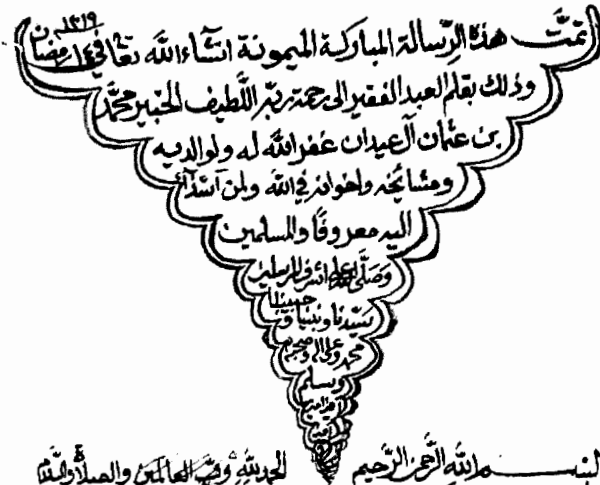 تمت هذه الرسالة المباركة الميمونة انشاء الله تعالى في ١٤ رمضان ١٣١٩
وذلك بقلم العبد الفقير الى رحمة ربه اللطيف الخبير محمد
بن عثمان آل عيدان غفر الله له ولوالديه
ومشايخه واخوانه في الله ولمن أسدا
اليه معروفا والمسلمين
وصلى الله على اشرف المرسلين
سيدنا ونبينا وحبيبنا
محمد وعلى اله وصحبه
وسلم
بسم الله الرحمن الرحيم الحمد لله رب العالمين والصلاة والسلام